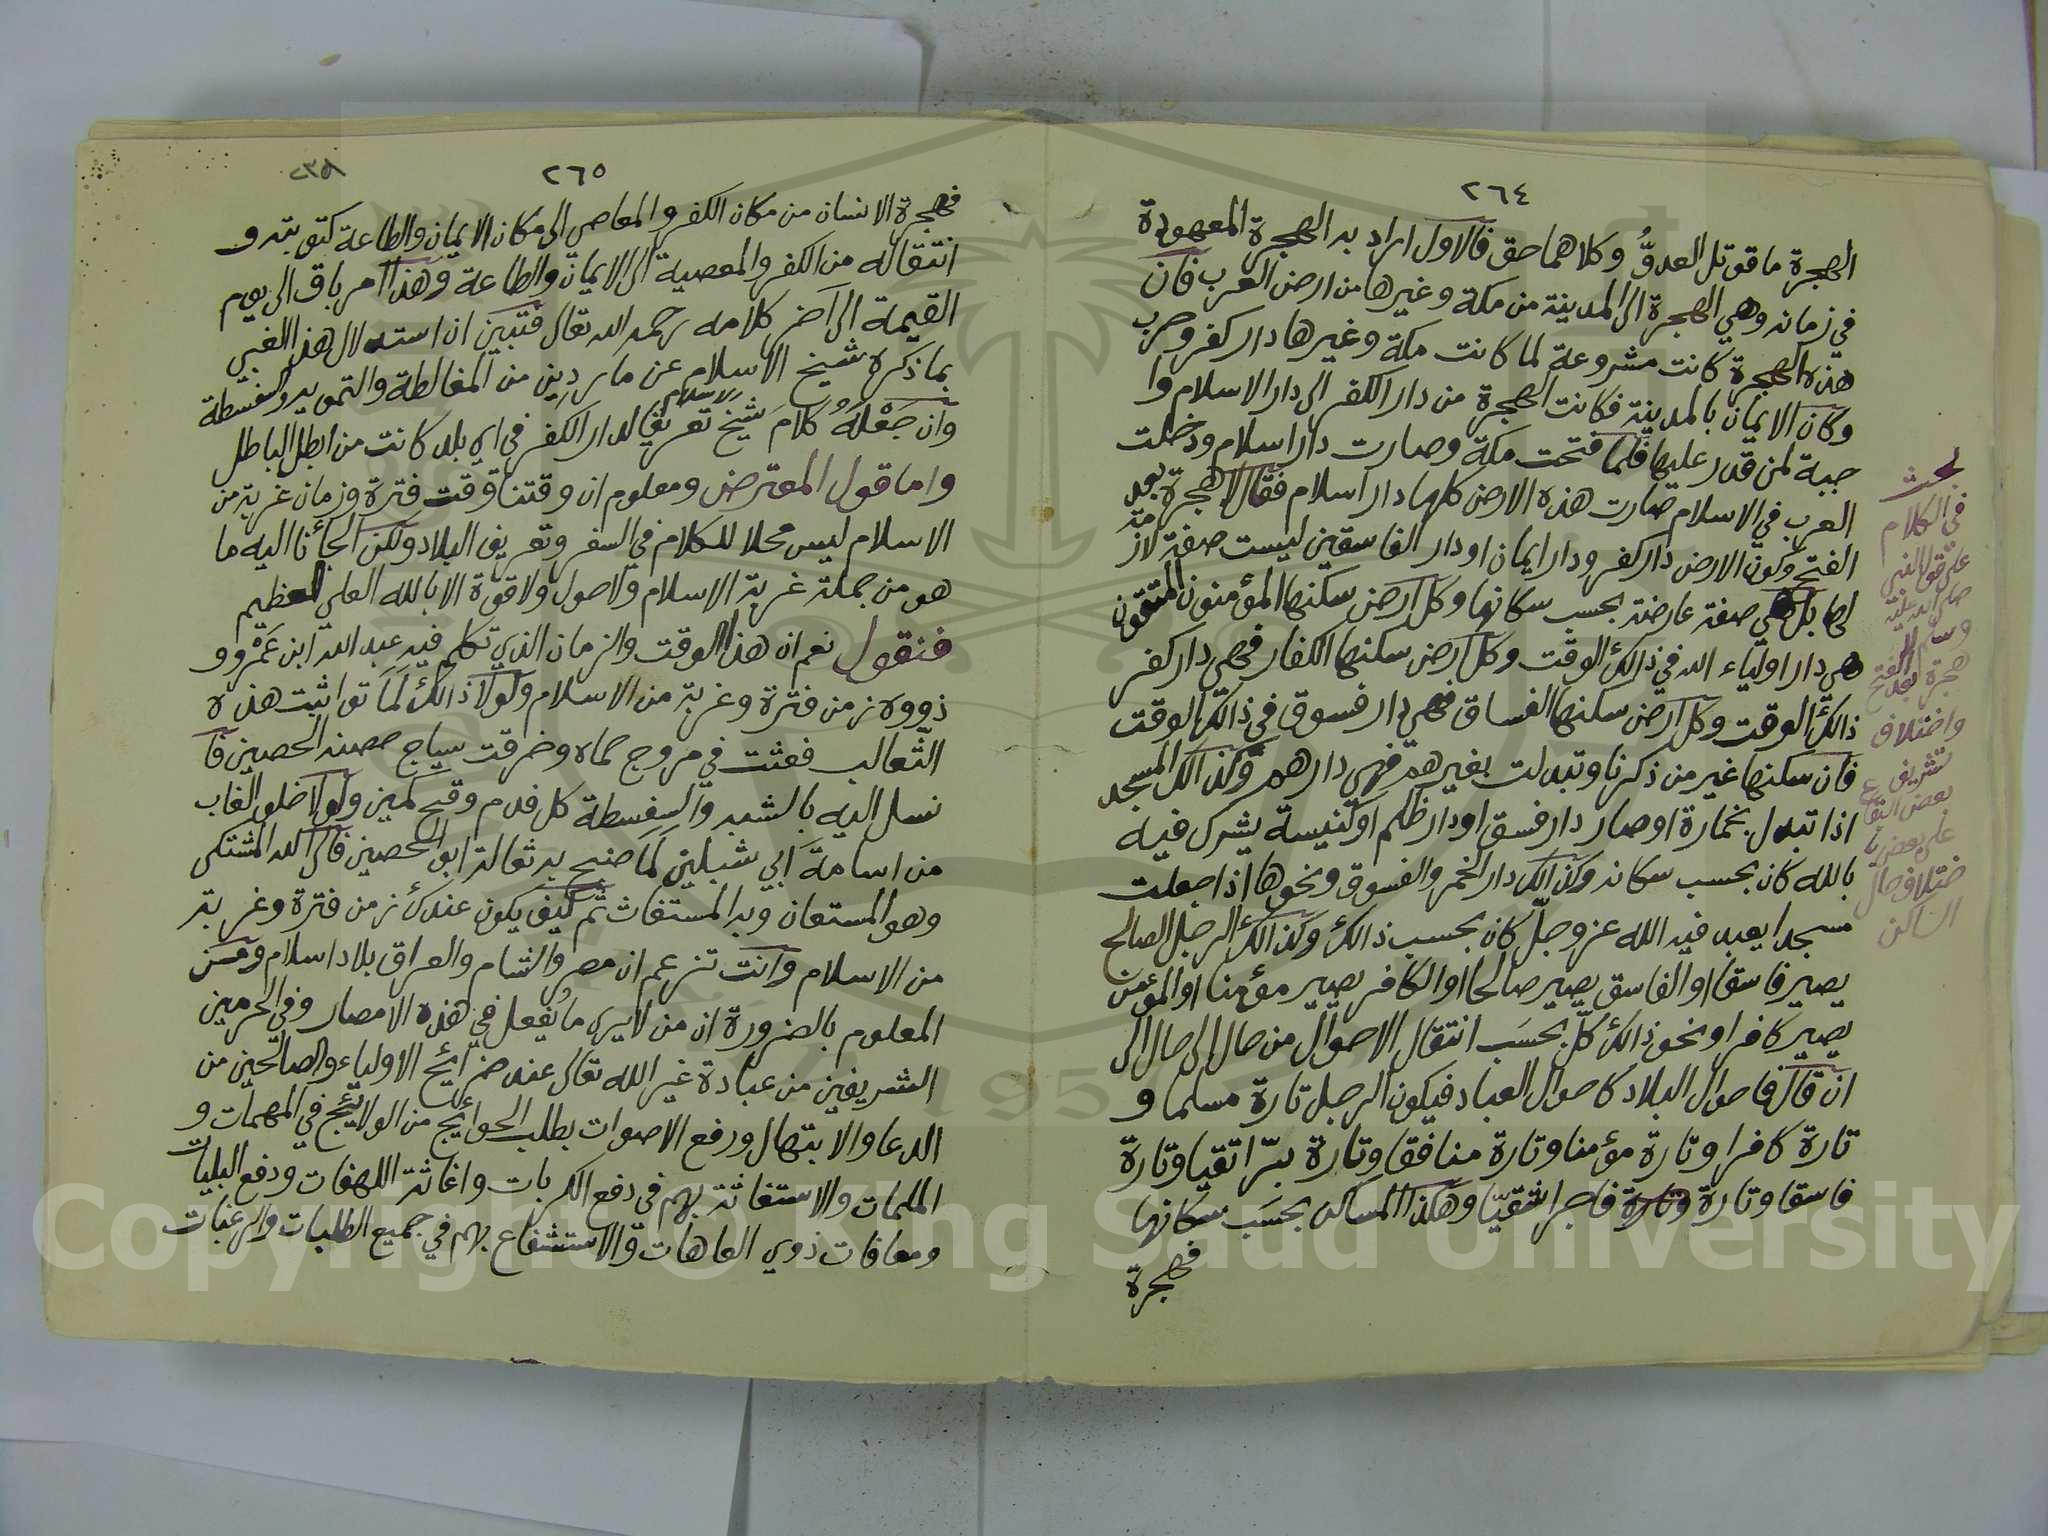 ٢٦٤
الهجرة ما قوتل العدوُّ وكلاهما حق فالاول اراد به الهجرة المعهودة
في زمانه وهي الهجرة الى المدينة من مكة وغيرها من ارض العرب فان
هذه الهجرة كانت مشروعة لما كانت مكة وغيرها دار كفر وحرب
وكان الايمان بالمدينة فكانت الهجرة من دار الكفر الى دار الاسلام وا
جبة لمن قدر عليها فلما فتحت مكة وصارت دار اسلام ودخلت
العرب في الاسلام صارت هذه الارض كلها دار اسلام فقال لا هجرة بعد
الفتح وكون الارض دار كفر ودار ايمان او دار الفاسقين ليست صفة لازمة
لها بل هي صفة عارضة بحسب سكانها وكل ارض سكنها المؤمنون المتقون
هي دار اولياء الله في ذالك الوقت وكل ارض سكنها الكفار فهي دار كفر
ذالك الوقت وكل ارض سكنها الفساق فهي دار فسوق في ذالك الوقت
فان سكنها غير من ذكرنا وتبدلت بغيرهم فهي دارهم وكذالك المسجد
اذا تبدل بخمارة او صار دار فسق او دار ظلم او كنيسة يشرك فيه
بالله كان بحسب سكانه وكذالك دار الخمر والفسوق ونحوها اذا جعلت
مسجدا يعبد فيه الله عز وجل كان بحسب ذالك وكذالك الرجل الصالح
يصير فاسقا او الفاسق يصير صالحا او الكافر يصير مؤمنا او المؤمن
يصير كافرا او نحو ذالك كلٌّ بحسَب انتقال الاحوال من حال الى حال الى
ان قال فاحوال البلاد كاحوال العباد فيكون الرجل تارة مسلما و
تارة كافرا وتارة مؤمنا وتارة منافقا وتارة برّا تقيا وتارة
فاسقا وتارة وتارة فاجرا شقيّا وهكذا المساكن بحسَب سكانها
فهجرة
بحث
في الكلام
على قول النبي
صلى الله عليه
وسلم لا
هجرة بعد الفتح
واختلاف
تشريف
بعض البقاع
على بعض با
ختلاف حال
الساكن
٢٦٥
٢٣٥
فهجرة الانسان من مكان الكفر والمعاصي الى مكان الايمان والطاعة كتوبته و
انتقاله من الكفر والمعصية الى الايمان والطاعة وهذا امر باق الى يوم
القيمة الى آخر كلامه رحمه الله تعالى فتبين ان استدلال هذا الغبي
بما ذكره شيخ الاسلام عن ماردين من المغالطة والتمويه والسفسطة
وان جَعْلَهُ كلامَ شيخ الاسلام تعريفا لدار الكفر في اي بلد كانت من ابطل الباطل
واما قول المعترض ومعلوم ان وقتنا وقت فترة وزمان غربة من
الاسلام ليس محلا للكلام في السفر وتعريف البلاد ولكن الجأنا اليه ما
هو من جملة غربة الاسلام ولا حول ولا قوة الا بالله العلي العظيم
فنقول نعم ان هذا الوقت والزمان الذي تكلم فيه عبد الله ابن عَمْرو و
ذووه زمن فترة وغربة من الاسلام ولولا ذالك لَمَا تواثبت هذه
الثعالب فعثت في مروج حماه وخرقت سياج حصنه الحصين فا
نسل اليه بالشبه والسفسطة كل فدم وقح لَمين ولولا خلو الغاب
من اسامة ابي شبلين لَمَا ضبح به ثعالة ابو الحصين فالى الله المشتكى
وهو المستعان وبه المستغاث ثم كيف يكون عندك زمن فترة وغربة
من الاسلام وانت تزعم ان مصر والشام والعراق بلاد اسلام ومن
المعلوم بالضرورة ان من لا يرى ما يُفعل في هذه الامصار وفي الحرمين
الشريفين من عبادة غير الله تعالى عند ضرائح الاولياء والصالحين من
الدعا والابتهال ورفع الاصوات بطلب الحوائج من الولائج في المهمات و
الملمات والاستغاثة بهم في دفع الكربات واغاثة اللهفات ودفع البليات
ومعافات ذوي العاهات والاستشفاع بهم في جميع الطلبات والرغبات
Copyright © King Saud University
1957